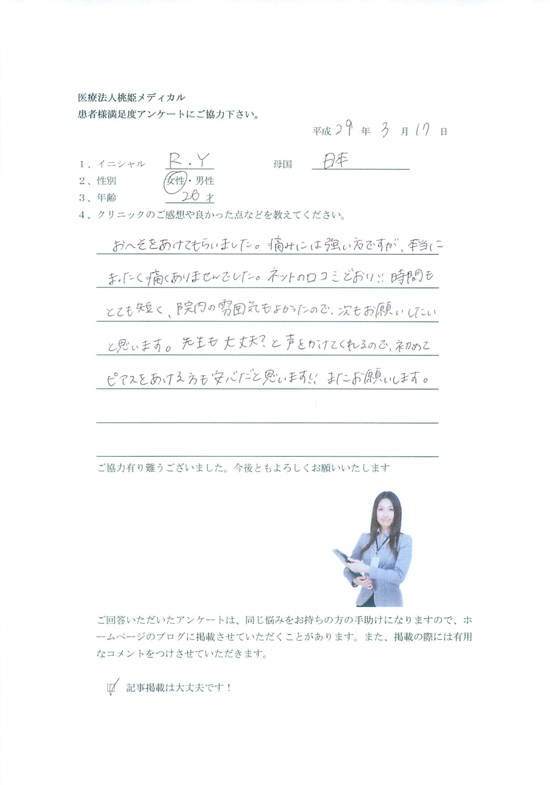 医療法人桃姫メディカル
患者様満足度アンケートにご協力下さい。
平成 29 年 3 月 17 日
1、イニシャル R.Y 母国 日本
2、性別 女性・男性
3、年齢 26才
4、クリニックのご感想や良かった点などを教えてください。
おへそをあけてもらいました。痛みには強い方ですが、本当に
まったく痛くありませんでした。ネットの口コミどおり!! 時間も
とても短く、院内の雰囲気もよかったので、次もお願いしたい
と思います。先生も大丈夫?と声をかけてくれるので、初めて
ピアスをあける方も安心だと思います!! またお願いします。
ご協力有り難うございました。今後ともよろしくお願いいたします
ご回答いただいたアンケートは、同じ悩みをお持ちの方の手助けになりますので、ホ
ームページのブログに掲載させていただくことがあります。また、掲載の際には有用
なコメントをつけさせていただきます。
記事掲載は大丈夫です！